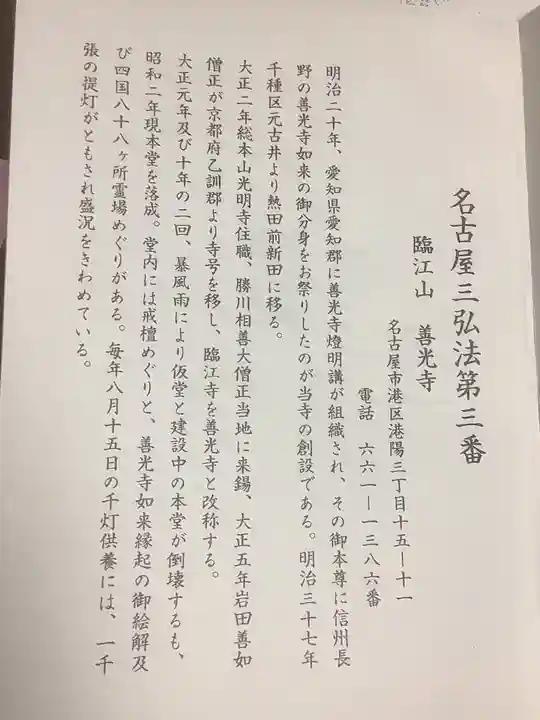 名古屋三弘法第三番
臨江山 善光寺
名古屋市港区港陽三丁目十五―十一
電話 六六一―一三八六番
明治二十年、愛知県愛知郡に善光寺燈明講が組織され、その御本尊に信州長
野の善光寺如来の御分身をお祭りしたのが当寺の創設である。明治三十七年
千種区元古井より熱田前新田に移る。
大正二年総本山光明寺住職、勝川相善大僧正当地に来錫、大正五年岩田善如
僧正が京都府乙訓郡より寺号を移し、臨江寺を善光寺と改称する。
大正元年及び十年の二回、暴風雨により仮堂と建設中の本堂が倒壊するも、
昭和二年現本堂を落成。堂内には戒檀めぐりと、善光寺如来縁起の御絵解及
び四国八十八ヶ所霊場めぐりがある。毎年八月十五日の千灯供養には、一千
張の提灯がともされ盛況をきわめている。